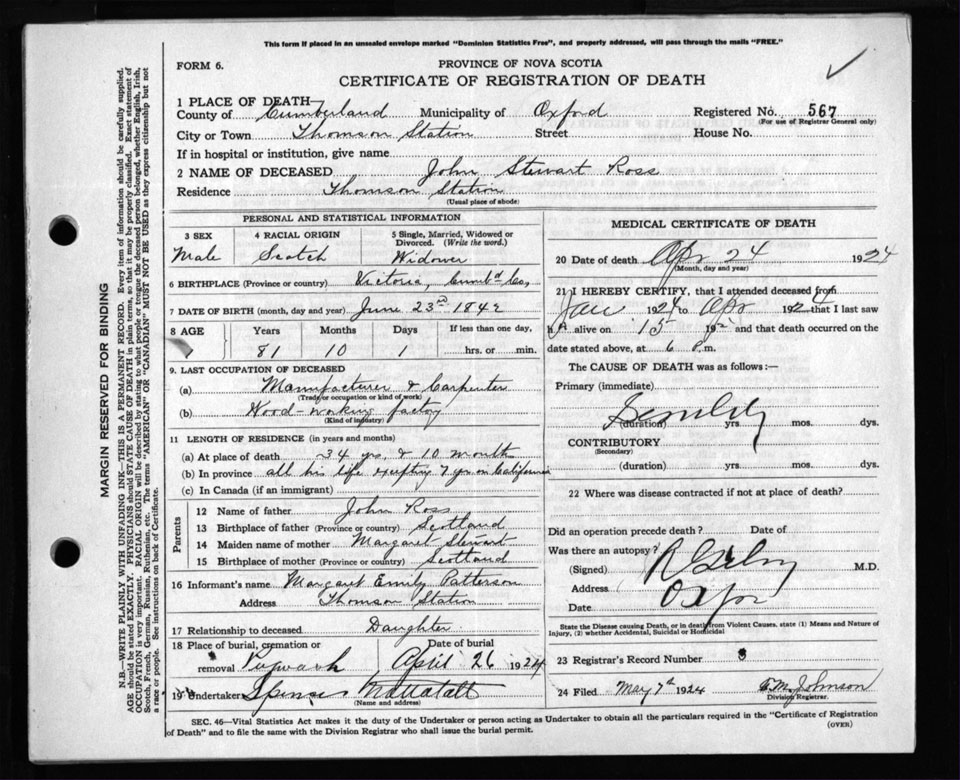 This form if placed in an unsealed envelope marked "Dominion Statistics Free", and properly addressed, will pass through the mails "FREE."
FORM 6.
PROVINCE OF NOVA SCOTIA
CERTIFICATE OF REGISTRATION OF DEATH
1 PLACE OF DEATH—
County of Cumberland Municipality of Oxford Registered No. 567
(For use of Registrar General only)
City or Town Thomson Station Street House No.
If in hospital or institution, give name
2 NAME OF DECEASED John Stewart Ross
Residence Thomson Station
(Usual place of abode)
PERSONAL AND STATISTICAL INFORMATION
3 SEX 4 RACIAL ORIGIN 5 Single, Married, Widowed or Divorced. (Write the word.)
Male Scotch Widower
6 BIRTHPLACE (Province or country) Victoria, Cumbd Co,
7 DATE OF BIRTH (month, day and year) June 23rd 1842
8 AGE Years Months Days If less than one day,
81 10 1 hrs. or min.
9. LAST OCCUPATION OF DECEASED
(a) Manufacterer & Carpenter
(Trade or occupation or kind of work)
(b) Wood-working factory
(Kind of industry)
11 LENGTH OF RESIDENCE (in years and months)
(a) At place of death 34 yrs. & 10 month
(b) In province all his life excepting 7 yr on California
(c) In Canada (if an immigrant)
Parents
12 Name of father John Ross
13 Birthplace of father (Province or country) Scotland
14 Maiden name of mother Margaret Stewart
15 Birthplace of mother (Province or country) Scotland
16 Informant's name Margaret Emily Patterson
Address Thomson Station
17 Relationship to deceased Daughter
18 Place of burial, cremation or removal Pugwash Date of burial April 26 1924
19 Undertaker
(Name and address)
MEDICAL CERTIFICATE OF DEATH
20 Date of death Apr 24 1924
(Month, day and year)
21 I HEREBY CERTIFY, that I attended deceased from
Jau 1924 to Apr 1924 that I last saw
h alive on 15 192 and that death occurred on
date stated above, at 6 P.m.
The CAUSE OF DEATH was as follows:—
Primary (immediate)
Senility
(duration) yrs. mos. dys.
CONTRIBUTORY
(Secondary)
(duration) yrs. mos. dys.
22 Where was disease contracted if not at place of death?
Did an operation precede death? Date of
Was there an autopsy?
(Signed) M.D.
Address Oxfor
Date
State the Disease causing Death, or in death from Violent Causes, state (1) Means and Nature of Injury, (2) whether Accidental, Suicidal or Homicidal
23 Registrar's Record Number
24 Filed May 7th 1924 E M Johnson
Division Registrar.
SEC. 46—Vital Statistics Act makes it the duty of the Undertaker or person acting as Undertaker to obtain all the particulars required in the "Certificate of Registration
of Death" and to file the same with the Division Registrar who shall issue the burial permit.
(OVER)
MARGIN RESERVED FOR BINDING
N.B.—WRITE PLAINLY WITH UNFADING INK—THIS IS A PERMANENT RECORD. Every item of information should be carefully supplied.
AGE should be stated EXACTLY. PHYSICIANS should STATE CAUSE OF DEATH in plain terms, so that it may be properly classified. Exact statement of
OCCUPATION is very important. RACIAL ORIGIN will be described by stating to what people or tongue the deceased person belonged, whether English, Irish,
Scotch, French, German, Russian, Ruthenian, etc. The terms "AMERICAN" OR "CANADIAN" MUST NOT BE USED as they express citizenship but not
a race or people. See instructions on back of Certificate.